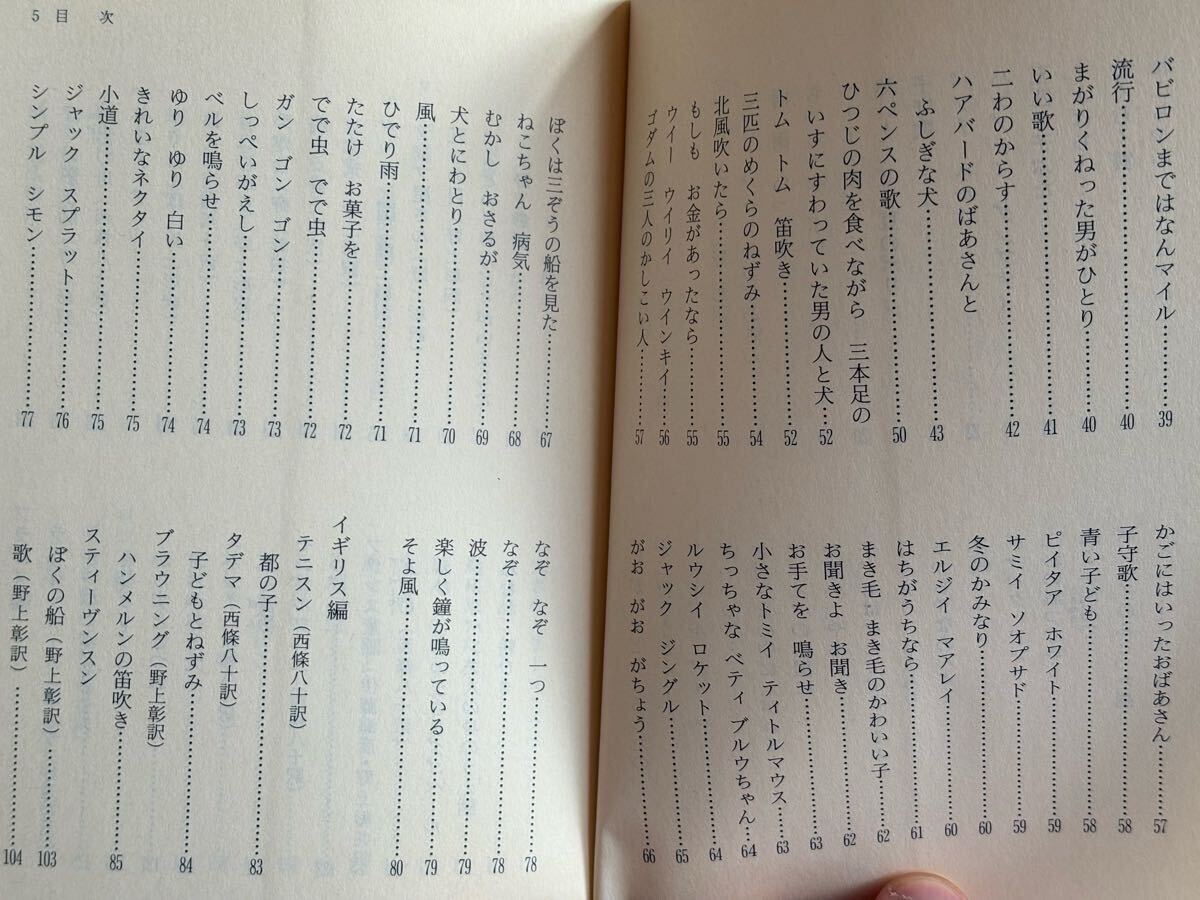 バビロンまではなんマイル…………39
流行…………40
まがりくねった男がひとり…………40
いい歌…………41
二わのからす…………42
ハアバードのばあさんと
ふしぎな犬…………43
六ペンスの歌…………50
ひつじの肉を食べながら 三本足の
いすにすわっていた男の人と犬…52
トム トム 笛吹き…………52
三匹のめくらのねずみ…………54
北風吹いたら…………55
もしも お金があったなら…………55
ウイー ウイリイ ウインキイ…………56
ゴダムの三人のかしこい人…………57
かごにはいったおばあさん…………57
子守歌…………58
青い子ども…………58
ピイタア ホワイト…………59
サミイ ソオプサド…………59
冬のかみなり…………60
エルジイ マアレイ…………60
はちがうちなら…………61
まき毛 まき毛のかわいい子…………62
お聞きよ お聞き…………62
お手てを 鳴らせ…………63
小さなトミイ ティトルマウス…………63
ちっちゃな ベティ ブルウちゃん…64
ルウシイ ロケット…………64
ジャック ジングル…………65
がお がお がちょう…………66
5 目 次
ぼくは三ぞうの船を見た…………67
ねこちゃん 病気…………68
むかし おさるが…………69
犬とにわとり…………70
風…………71
ひでり雨…………71
たたけ お菓子を…………72
でで虫 でで虫…………72
ガン ゴン ゴン…………73
しっぺいがえし…………73
ベルを鳴らせ…………74
ゆり ゆり 白い…………74
きれいなネクタイ…………75
小道…………75
ジャック スプラット…………76
シンプル シモン…………77
なぞ なぞ 一つ…………78
なぞ…………78
波…………79
楽しく鐘が鳴っている…………79
そよ風…………80
イギリス編
テニスン（西條八十訳）
都の子…………83
タデマ（西條八十訳）
子どもとねずみ…………84
ブラウニング（野上彰訳）
ハンメルンの笛吹き…………85
スティーヴンスン
ぼくの船（野上彰訳）…………103
歌（野上彰訳）…………104